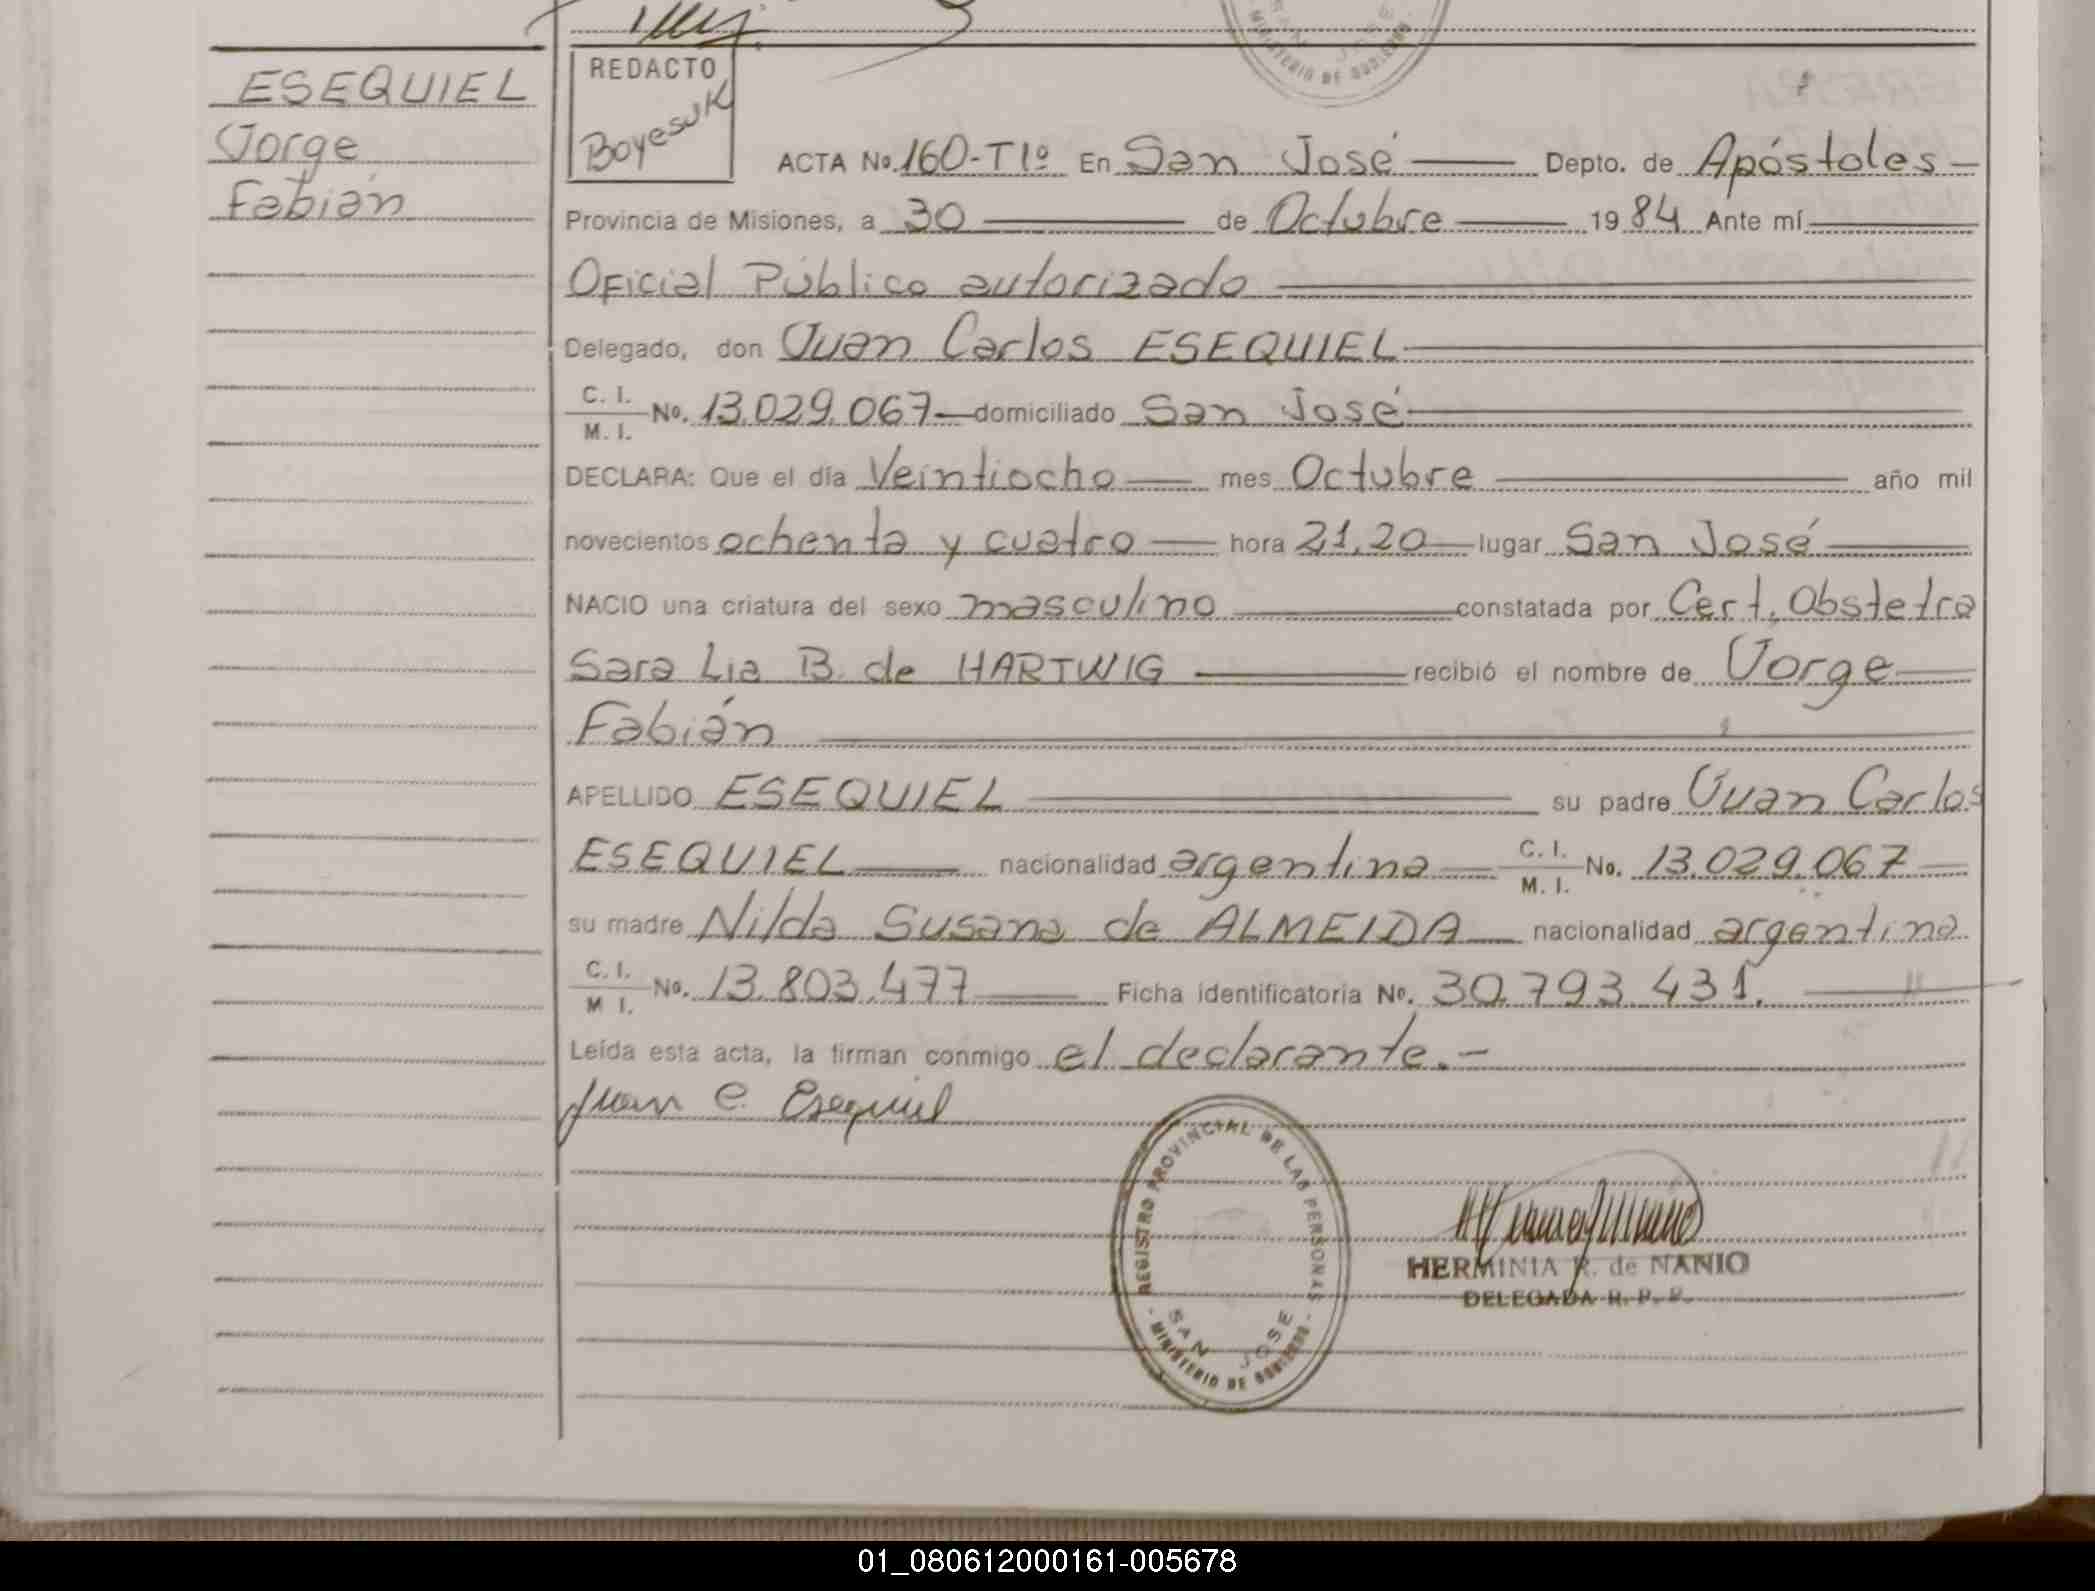 ESEQUIEL
Jorge
Fabián
REDACTO
Boyesuk
ACTA No. 160-T1º En San José Depto. de Apóstoles
Provincia de Misiones, a 30 de Octubre 1984 Ante mí
Oficial Público autorizado
Delegado, don Juan Carlos ESEQUIEL
C. I.
M. I. No. 13.029.067 domiciliado San José
DECLARA: Que el día Veintiocho mes Octubre año mil
novecientos ochenta y cuatro hora 21,20 lugar San José
NACIO una criatura del sexo masculino constatada por Cert. Obstetra
Sara Lia B. de HARTWIG recibió el nombre de Jorge
Fabián
APELLIDO ESEQUIEL su padre Juan Carlos
ESEQUIEL nacionalidad argentina C. I. M. I. No. 13.029.067
su madre Nilda Susana de ALMEIDA nacionalidad argentina
C. I. M I. No. 13.803.477 Ficha identificatoria No. 30.793.431.
Leída esta acta, la firman conmigo el declarante.-
Juan C. Esequiel
REGISTRO PROVINCIAL DE LAS PERSONAS
SAN JOSE
MINISTERIO DE GOBIERNO
HERMINIA R. de NANIO
DELEGADA R. P. P.
01_080612000161-005678